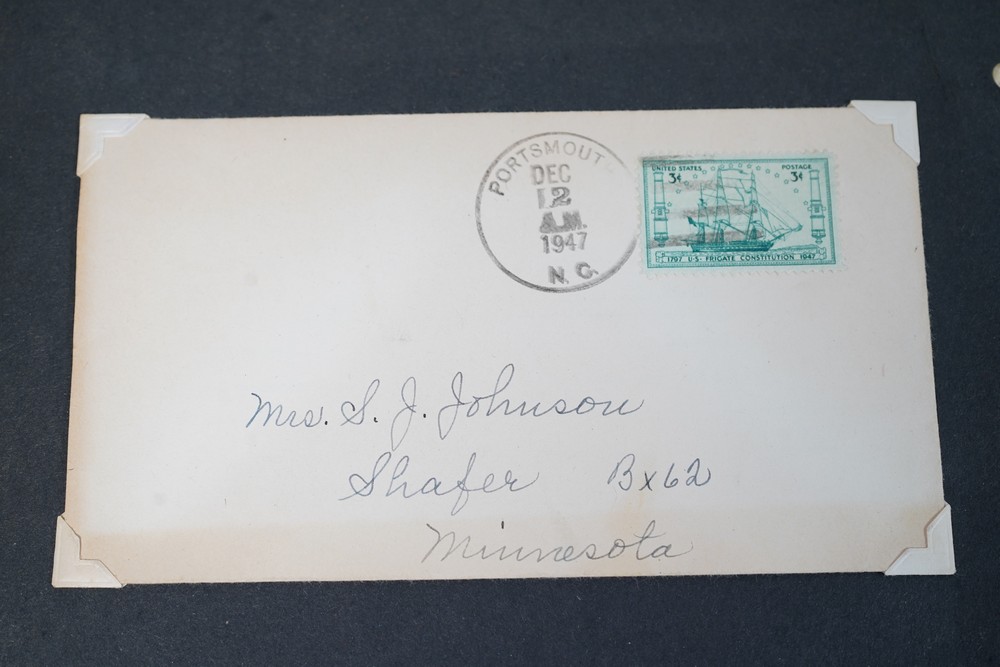 PORTSMOUT
DEC
12
A.M.
1947
N. C.
UNITED STATES POSTAGE
3¢ 3¢
1797 U.S. FRIGATE CONSTITUTION 1947
Mrs. S. J. Johnson
Shafer Bx62
Minnesota